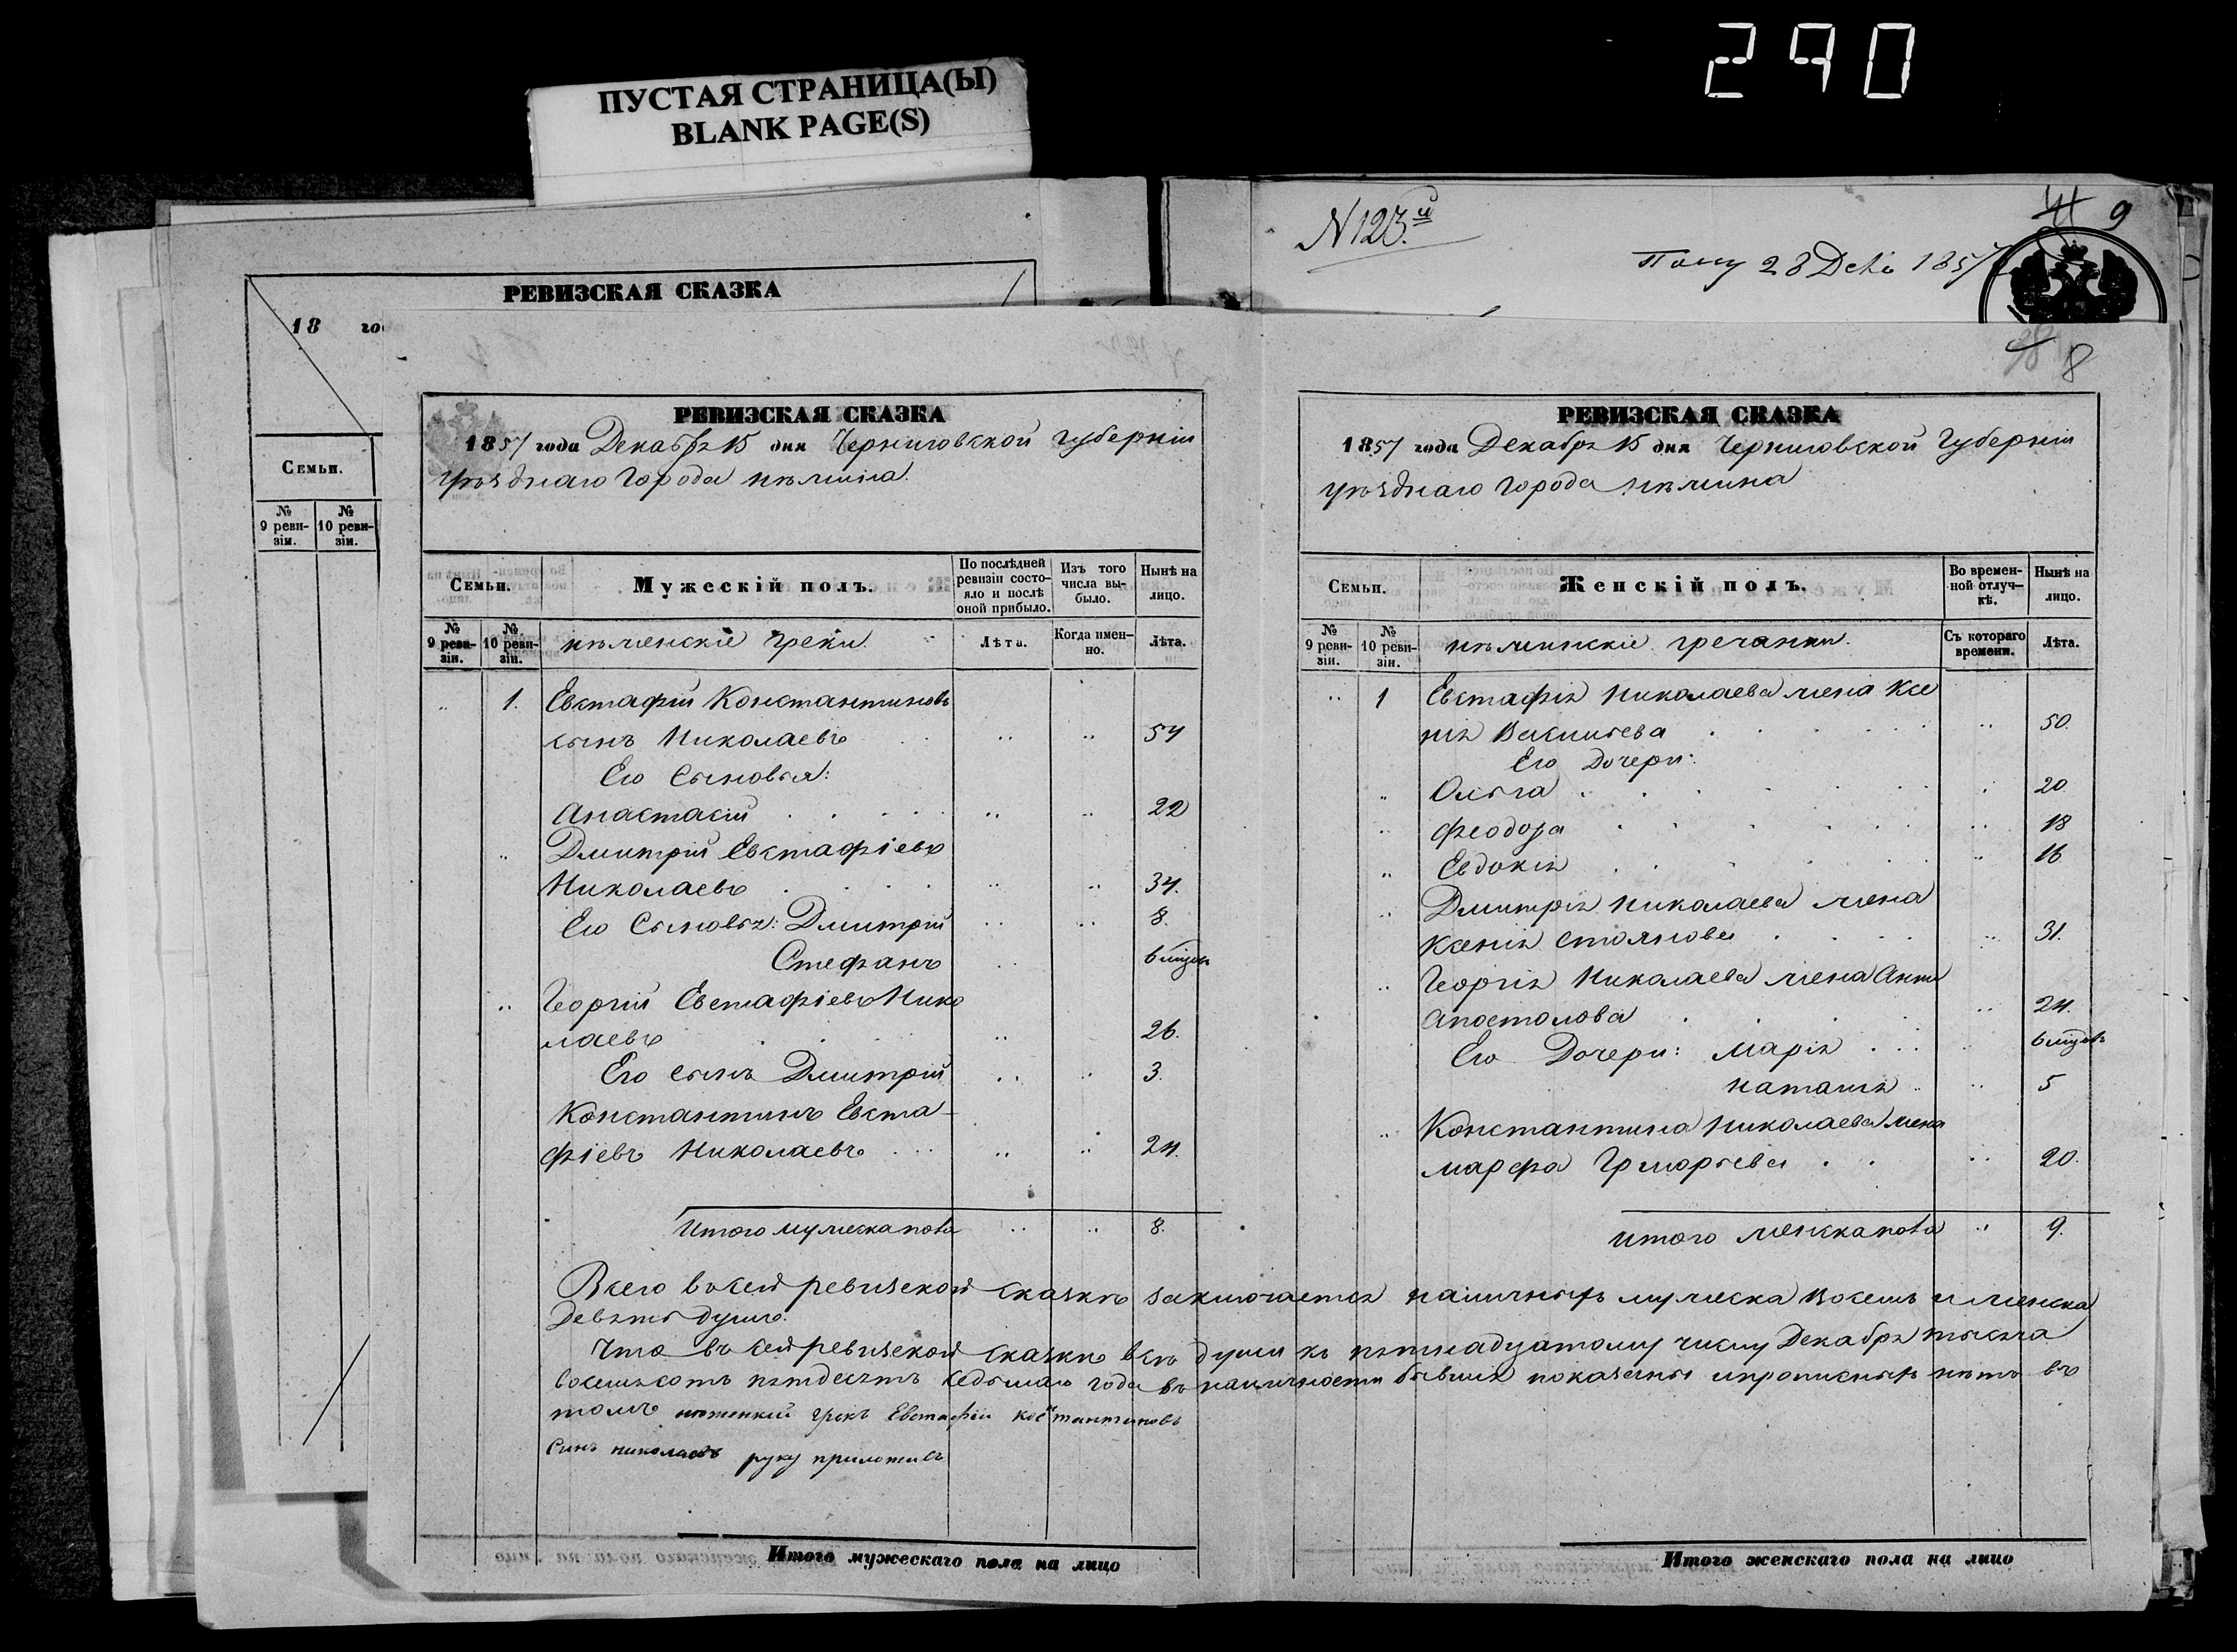 290
ПУСТАЯ СТРАНИЦА(Ы)
BLANK PAGE(S)
N 123.й
Полу 28 Дек 1857
9
РЕВИЗСКАЯ СКАЗКА
18 го
Семьи.
№ 9 реви-зіи. № 10 реви-зіи.
8
РЕВИЗСКАЯ СКАЗКА
1857 года Декабря 15 дня Черниговской Губерніи
уѣзднаго Города нѣжина.
Семьи. Мужескій полъ. По послѣдней ревизіи состо-яло и послѣ оной прибыло. Изъ того числа вы-было. Нынѣ на лицо.
№ 9 реви-зіи. № 10 реви-зіи. нѣженскіе греки. Лѣта. Когда имен-но. Лѣта.
1. Евстафій Константиновъ
сынъ Николаевъ 54
Его Сыновья:
Анастасій 22
Дмитрій Евстафіевъ
Николаевъ 34.
Его Сыновья: Дмитрій 8.
Стефанъ 6 мцовъ
Георгій Евстафіевъ Нико
лаевъ 26.
Его сынъ Дмитрій 3.
Константинъ Евста-
фіевъ Николаевъ 24.
Итого мужеска пола 8.
РЕВИЗСКАЯ СКАЗКА
1857 года Декабря 15 дня Черниговской Губерніи
уѣзднаго Города нѣжина
Семьи. Женскій полъ. Во времен-ной отлуч-кѣ. Нынѣ на лицо.
№ 9 реви-зіи. № 10 реви-зіи. нѣжинскіе гречанки. Съ котораго времени. Лѣта.
1 Евстафія Николаева жена Ксе
нія Васильева 50.
Его Дочери:
Ольга 20
Феодора 18
Евдокія 16
Дмитрія Николаева жена
Ксенія Стоянова 31.
Георгія Николаева жена
Апостолова 24.
Его Дочери: Марія 6 мцовъ
Наталія 5
Константина Николаева жена
Марфа Григорьева 20.
Итого женска пола 9.
Всего въ сей ревизской сказкѣ заключается наличныхъ мужеска Восемь и женска
Девять душъ.
Что въ сей ревизской сказкѣ всѣ души къ пятнадцатому числу Декабря тысяча
восемьсотъ пятдесятъ седьмаго года въ наличности бывшія показаны и прописныхъ нѣтъ въ
томъ неженкій грекъ Евстафіи Костантиновъ
Синъ николаевъ руку приложивъ
Итого мужескаго пола на лицо
Итого женскаго пола на лицо